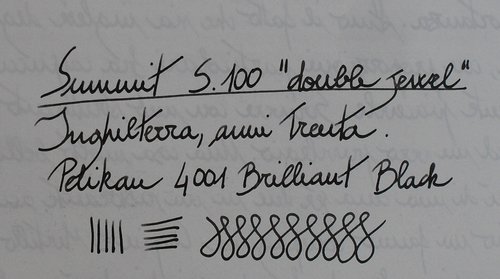 Summit S.100 "double jewel"
Inghilterra, anni Trenta.
Pelikan 4001 Brilliant Black